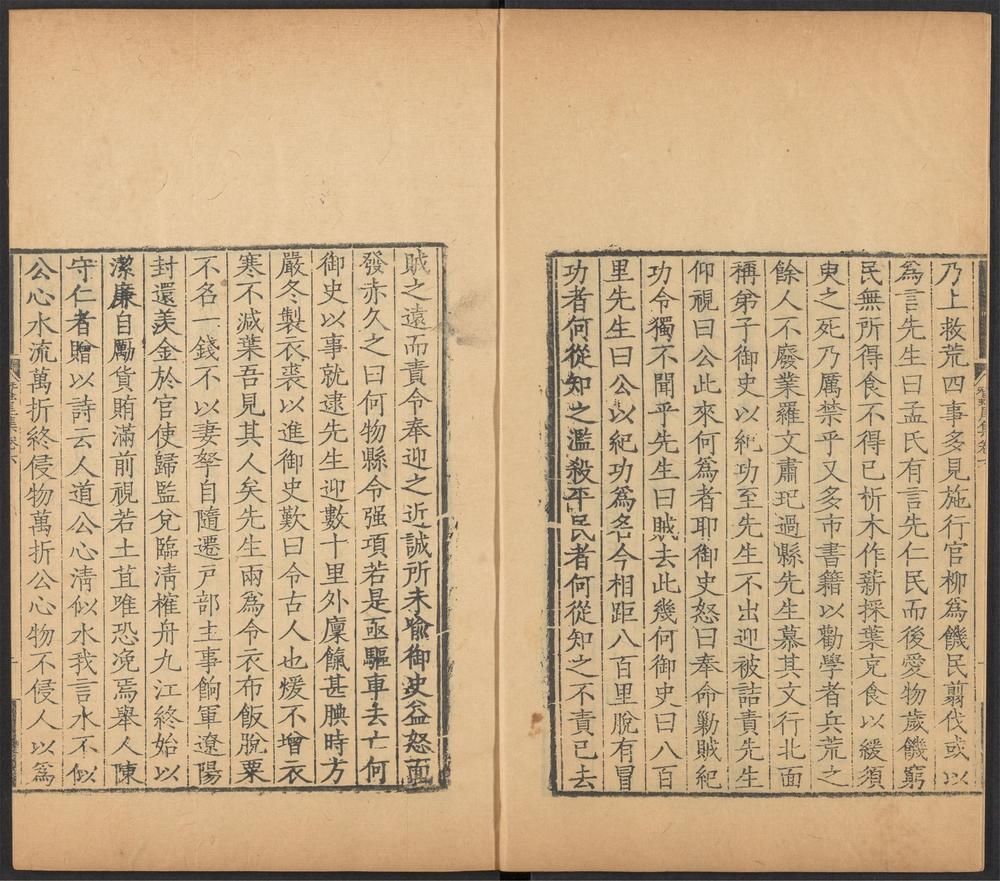 乃上救荒四事多見施行官柳爲饑民翦伐或以
爲言先生曰孟氏有言先仁民而後愛物歲饑窮
民無所得食不得已析木作薪採葉克食以緩須
臾之死乃厲禁乎又多市書籍以勸學者兵荒之
餘人不廢業羅文肅玘過縣先生慕其文行北面
稱弟子御史以紀功至先生不出迎被詰責先生
仰視曰公此來何爲者耶御史怒曰奉命勦賊紀
功令獨不聞乎先生曰賊去此幾何御史曰八百
里先生曰公以紀功爲名今相距八百里脫有冒
功者何從知之濫殺平民者何從知之不責已去
賊之遠而責令奉迎之近誠所未喻御史益怒面
發赤久之曰何物縣令强項若是亟驅車去亡何
御史以事就逮先生迎數十里外廩餼甚腆時方
嚴冬製衣裘以進御史歎曰令古人也煖不增衣
寒不減葉吾見其人矣先生兩爲令衣布飯脫粟
不名一錢不以妻孥自隨遷戸部主事餉軍遼陽
封還羨金於官使歸監兌臨清榷舟九江終始以
潔廉自勵貨賄滿前視若土苴唯恐凂焉舉人陳
守仁者贈以詩云人道公心淸似水我言水不似
公心水流萬折終侵物萬折公心物不侵人以爲